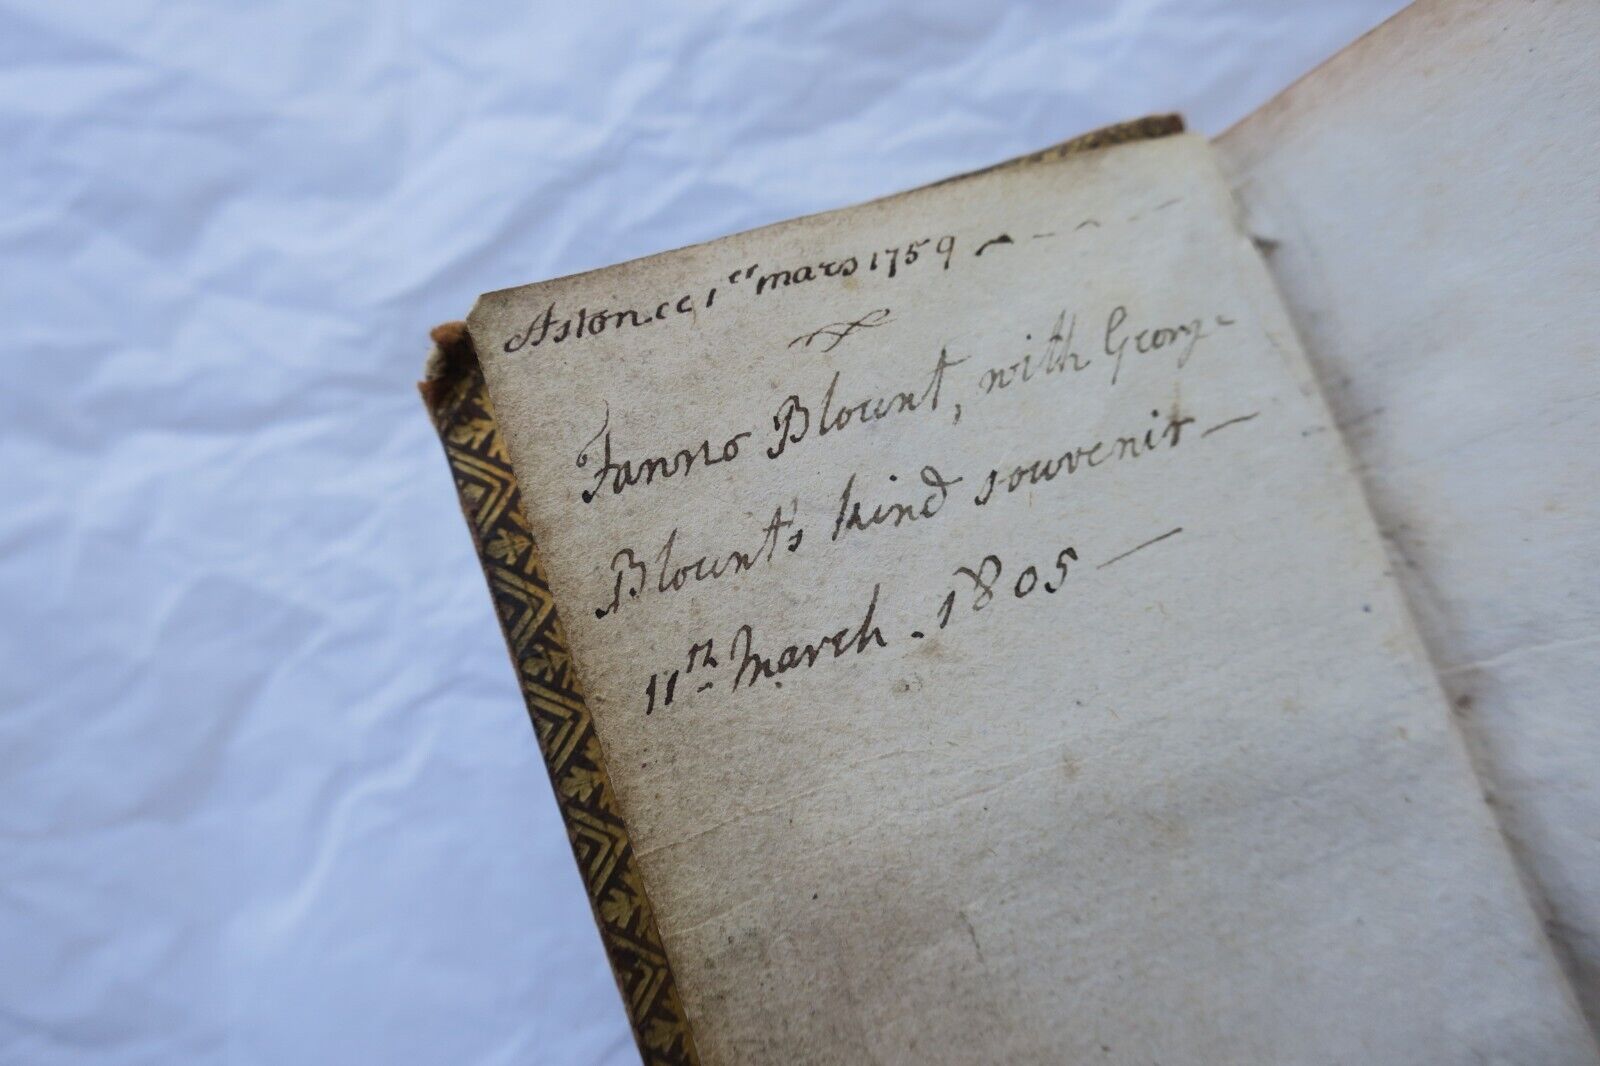 Aston ce 1er mars 1759
Blount, with George
Blount's kind souvenir —
11th March - 1805 —